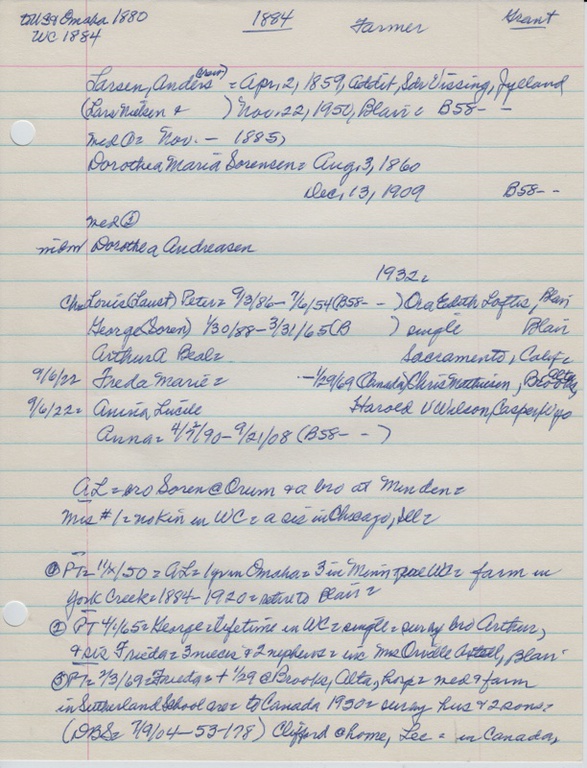 to US Omaha 1880 1884 Farmer Grant
WC 1884
Larsen, Anders = Apr, 2, 1859, Addit, Sdr Vissing, Jyeland
(Lars Nielsen & ) Nov. 22, 1950, Blair = B58- -
med ① = Nov. - 1885,
Dorothea Maria Sorensen = Aug, 3, 1860
Dec, 13, 1909 B58- -
med ②
Dorothea Andreasen
1932 =
Ch = Louis (Laust) Peter = 9/3/86 - 7/6/54 (B58- - ) Ora Edith Loftis, Blair
George (Soren) 1/30/88 - 3/31/65 (B ) single Blair
Arthur A Beal = Sacramento, Calif =
9/6/22 Freda Marie = - 1/29/69 (Canada) Chris Mathiesen, Brooks, Alta
9/6/22 = Anina Lucile Harold V Wilson, Casper, Wyo
Anna = 4/7/90 - 9/21/08 (B58- - )
AL = bro Soren @ Orum & a bro at Minden =
Mrs #1 = no kin in WC = a sis in Chicago, Ill =
① PT = 11/ /50 = AL = 1 yr in Omaha = 3 in Minn WC = farm in
York Creek = 1884 - 1920 = retire to Blair =
② PT 4/ /65 = George = lifetime in WC = single = surv by bro Arthur,
& sis Frieda = 3 nieces & 2 nephews = inc Mrs Orville , Blair
③ PT = 2/3/69 = Frieda = + 1/29 @ Brooks, Alta, hosp = med & farm
in Sutherland School area = to Canada 1930 = surv by hus & 2 sons =
(DBS = 7/9/04 - 53-178) Clifford @ home, Lee = in Canada,